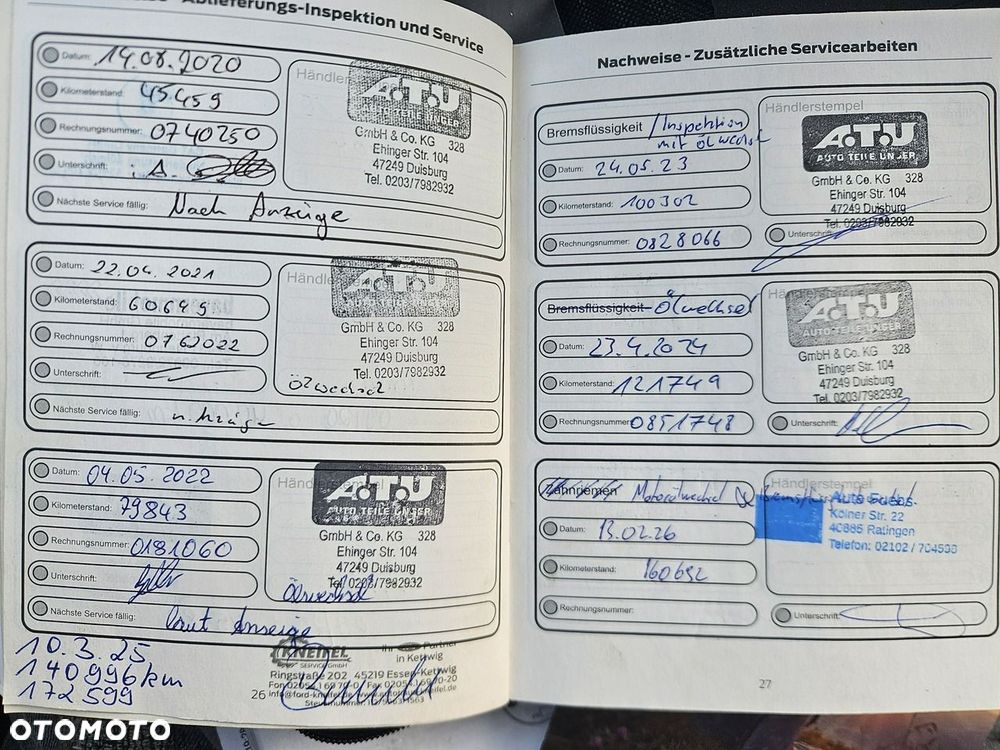 Ablieferungs-Inspektion und Service
Datum: 14.08.2020
Kilometerstand: 45.459
Rechnungsnummer: 0740250
Unterschrift:
Nächste Service fällig: Nach Anzeige
Händlerstempel
A.T.U
AUTO TEILE UNGER
GmbH & Co. KG 328
Ehinger Str. 104
47249 Duisburg
Tel. 0203/7982932
Datum: 22.04.2021
Kilometerstand: 60.649
Rechnungsnummer: 0762022
Unterschrift:
Nächste Service fällig: n. Anzeige
Händlerstempel
A.T.U
AUTO TEILE UNGER
GmbH & Co. KG 328
Ehinger Str. 104
47249 Duisburg
Tel. 0203/7982932
Ölwechsel
Datum: 04.05.2022
Kilometerstand: 79843
Rechnungsnummer: 0181060
Unterschrift:
Nächste Service fällig: laut Anzeige
Händlerstempel
A.T.U
AUTO TEILE UNGER
GmbH & Co. KG 328
Ehinger Str. 104
47249 Duisburg
Tel. 0203/7982932
Ölwechsel
10.3.25
140996km
172599
KNEIFEL
SERVICE GMBH
Ihr Partner
in Kettwig
Ringstraße 202 45219 Essen-Kettwig
26
Nachweise - Zusätzliche Servicearbeiten
Bremsflüssigkeit / Inspektion
mit Ölwechsel
Datum: 24.05.23
Kilometerstand: 100302
Rechnungsnummer: 0828066
Händlerstempel
A.T.U
AUTO TEILE UNGER
GmbH & Co. KG 328
Ehinger Str. 104
47249 Duisburg
Tel. 0203/7982932
Unterschrift:
Bremsflüssigkeit Ölwechsel
Datum: 23.4.2024
Kilometerstand: 121749
Rechnungsnummer: 0851748
Händlerstempel
A.T.U
AUTO TEILE UNGER
GmbH & Co. KG 328
Ehinger Str. 104
47249 Duisburg
Tel. 0203/7982932
Unterschrift:
Zahnriemen Motorölwechsel &
Datum: 13.02.26
Kilometerstand: 160692
Rechnungsnummer:
Händlerstempel
Kölner Str. 22
40885 Ratingen
Telefon: 02102 / 704598
Unterschrift:
27
OTOMOTO